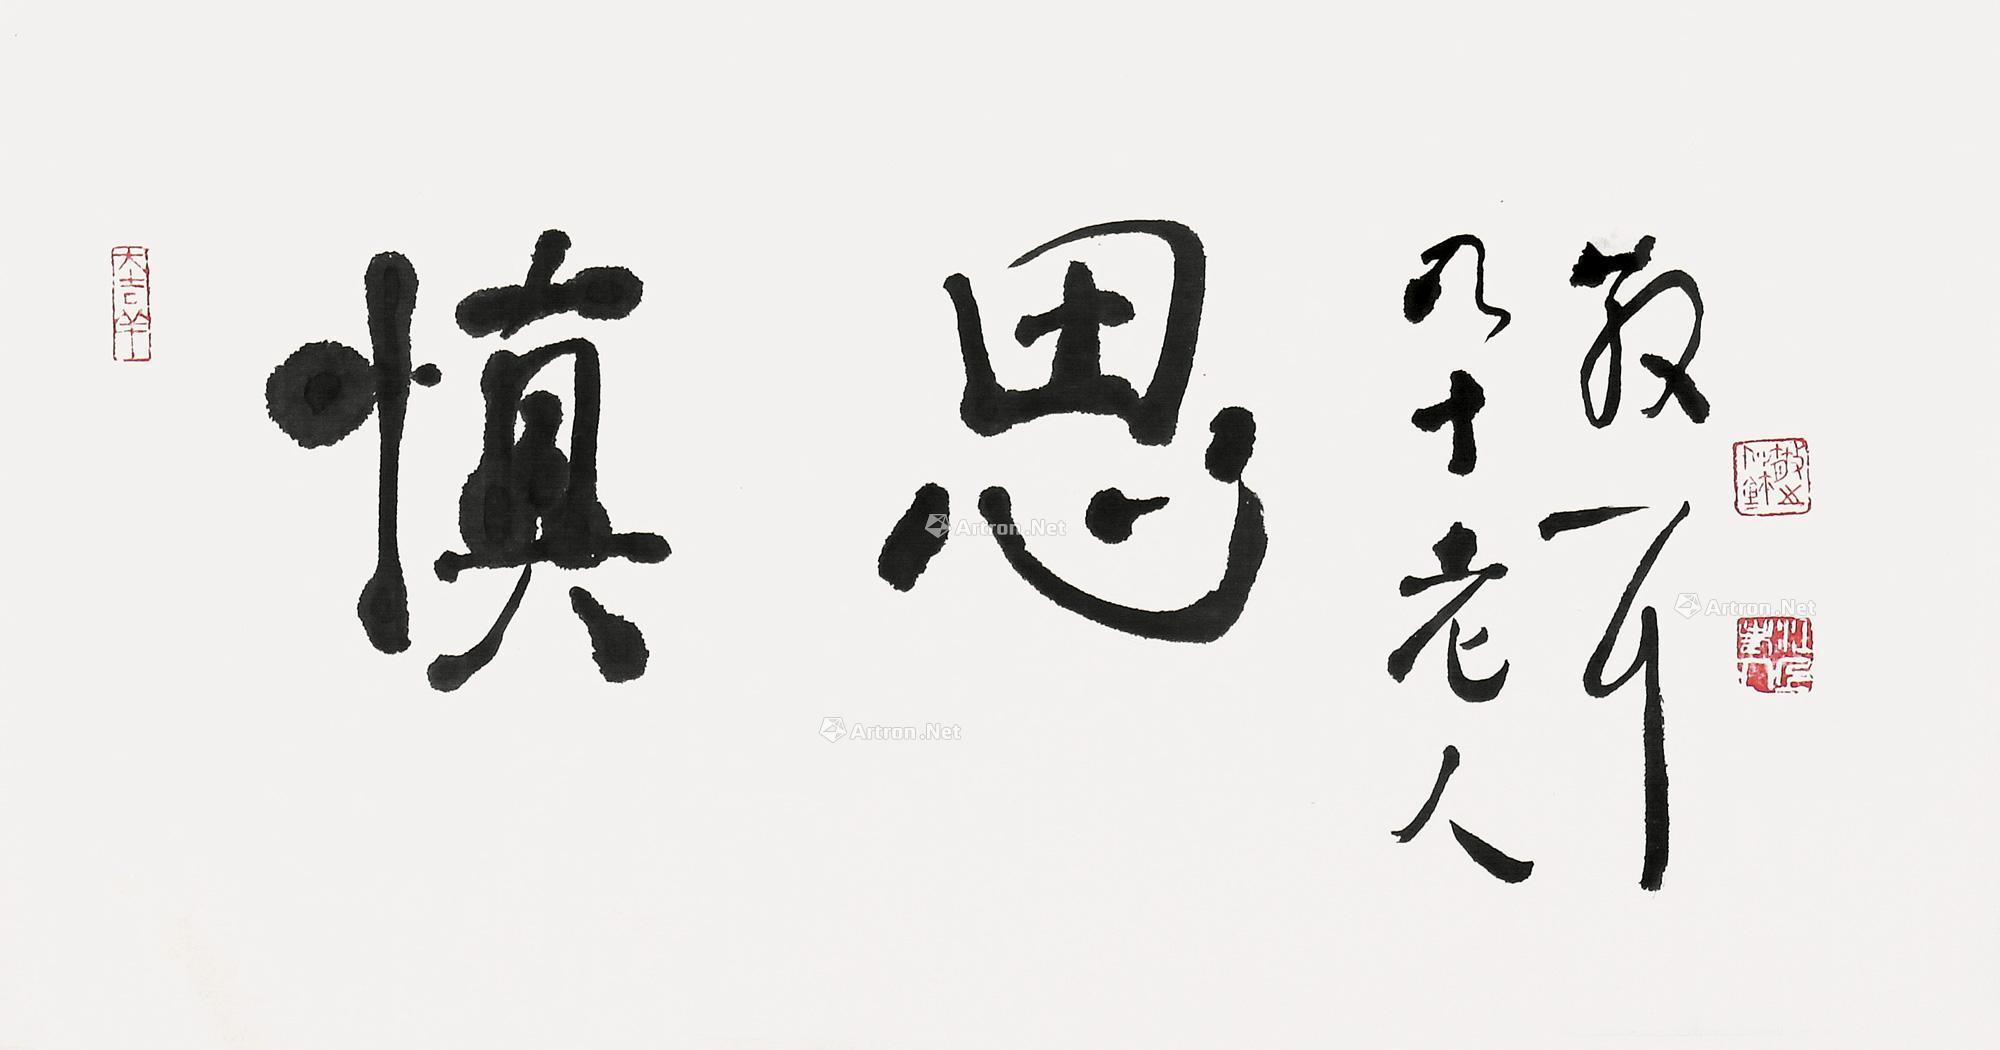 大吉羊
慎思
九十老人
散耳
Artron.Net
Artron.Net
Artron.Net